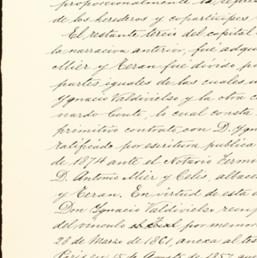 proporcionalmente la repre
de los herederos y coparticipes
El restante tercio del capital
la narracion anterior, fué adqu
Mier y Teran fué diviso p
partes iguales de las cuales u
Ygnacio Valdivielso y la otra c
nardo Conto, lo cual consta
primitivo contrato con D. Ygn
ratificado por escritura publica
de 1874 ante el Notario Fermi
D. Antonio Mier y Celis, albace
y Teran. En virtud de esta
Don Ygnacio Valdivielso reem
del vinculo por memor
28 de Marzo de 1861, anexa al tes
Paris en 15 de Agosto de 185